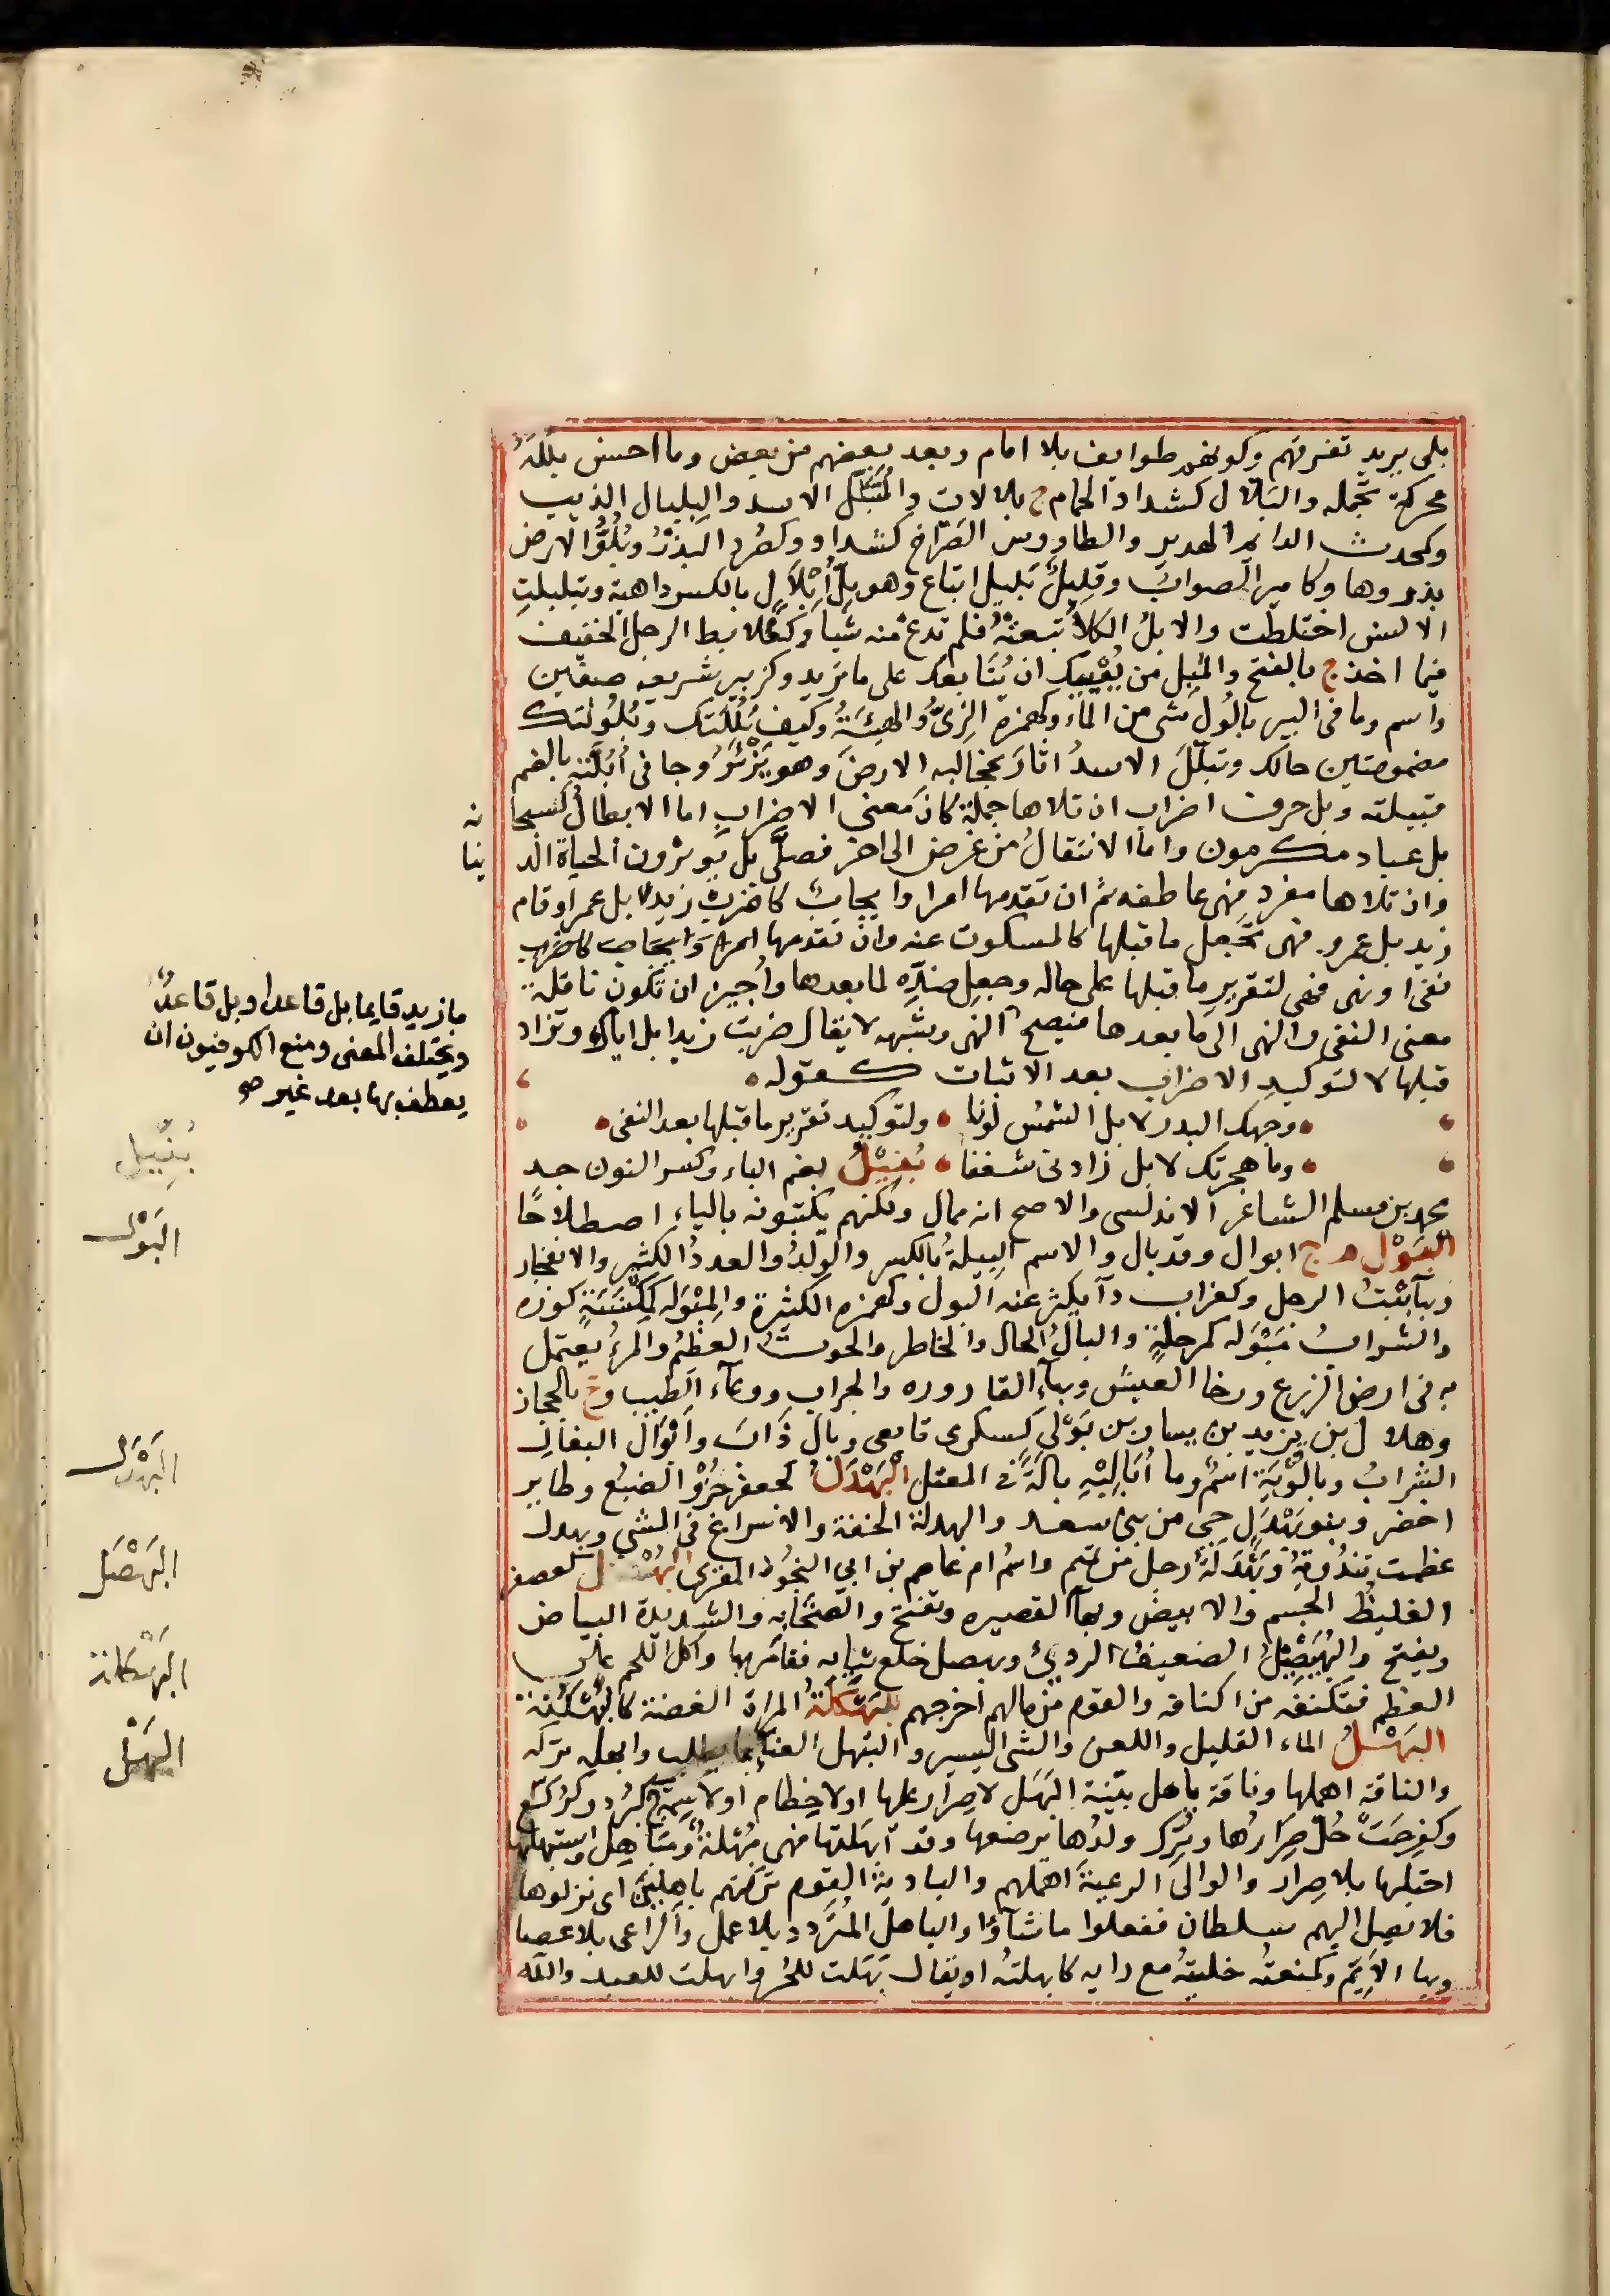 بلى يريد تفرقهم وكونهم طوايف بلا امام وبعد بعضهم من بعض وما احسن بللهُ
محركة تجمله والبَلّال كشداد الحمام ج بلالات والمُبَلِّل الاسد والبلبال الذيب
وكمحدث الدايم الهدير والطاووس الصَرّاخ كشداد وكصُرد البذرُ وبُلُّوا الارض
بذروها وكامير الصوابُ وقلِيلٌ بَليل اتباع وهو بِلُّ أبْلَالٍ بالكسر داهية وتبلبلتِ
الالسن اختلطت والابلُ الكلأ تبعثهُ فلم تدع منه شيأ وكعُلابط الرجل الخفيف
فيما اخذ ج بالفتح والمُبِل من يُعْيِيك ان يُتابعك على ما تريد وكزبير شريعه صفين
واسم وما فى البير بالُول شى من الماء وكهمزه الزِىُّ والهيئةُ وكيف بُلُلَتك وبُلُولتك
مضمومتين حالك وتبلّلَ الاسدُ اثارَ بمخالبه الارضَ وهو يَزْئرُ وجا فى اُبُلَّته بالضم
قبيلته وبل حرف اضراب ان تلاها جملة كان معنى الاضراب اما الابطال كسبحانه
بل عباد مكرمون واما الانتقالُ من غرض الى اخر فصلّى بل يوثرون الحياة الدنيا
وان تلاها مفرد فهى عاطفه ثم ان تقدمها امر او ايجابٌ كاضربْ زيدا بل عمرا وقام
زيد بل عمرو فهى تجعل ما قبلها كالمسكوت عنه وان تقدمها
نفى او نهى فهى لتقريرِ ما قبلها على حاله وجعلِ ضدِّه لما بعدها وأُجيز ان تكون ناقلة
معنى النفى والنهى الى ما بعدها فيصح
قبلها لا لتوكيدِ الاضراب بعد الاثبات كقوله
وجهك البدر لا بل الشمس لونا ولتوكيد تقرير ما قبلها بعد النفى
وما هجرتك لا بل زادنى شغفا بُنِّيْلُ بضم الباء وكسر النون جد
محمد بن مسلم الشاعر الاندلسى والاصح انه ممال ولكنهم يكتبونه بالياء اصطلاحًا
البَوْل م ج ابوال وقد بال والاسم البِيلةُ بالكسر والولدُ والعددُ الكثير والانفجار
وبهآءٍ بْنتُ الرجل وكغراب دآ يكثر عنه البول وكهمزه الكثيرة والمِبْوَله كمكنسةٍ كوزه
والشرابُ مَبْوَله كمرحلةٍ والبالُ الحال والخاطر والحوتُ العظيمُ والمرءُ يعتمل
به فى ارض الزرع ورخا العيش وبهآء القاروره والجراب ووعآء الطيب وع بالحجاز
وهلال بن يزيد بن يسار بن بَوْلى كسكرى تابعى وبال ذابَ وابْوَال البغال
الشرابُ وبالُوْيَةِ اسمٌ وما اُبالِيْهِ بالَةً فى المعتل البَهْدَلُ كجعفر جَرْوُ الضبُع وطاير
اخضر وبنو بَهْدَلٍ حى من بنى سعد والبهدلة الخفة والاسراع فى المشى وبهدل
عظمت ثندُوتهُ وبَهْدَلَةُ رجل من تميم واسمُ ام عاصم بن ابى النجُود المقرى البُهْصُل كعصفر
الغليظُ الجسم والابيض وبهآ القصيره وتفتح والصخّابه والشديدة البياض
ويفتح والبُهَيْصِلُ الضعيفُ الردىُ وبهصل خلع ثيابه فقامَر بها واكل اللحم على
العظم فتكنفه من اكنافه والقوم من مالهم اخرجهم البَهْكَلَةُ المراة الغضة كالبَهْكَنَة
البَهْلُ الماء القليل واللعن والشى اليسير والتبهل العنا بما يطلب وابهله تركه
والناقة اهملها وناقة باهل بيّنة البَهَل لا صِرار عليها او لا خِطام او لا سِمة ج كبُرد وكرُكَّع
وكفرِحَتْ حُلّ صِرارُها وتُرك ولدُها يرضعها وقد أبهَلتها فهى مُبْهَلةٌ ومُبَاهِل واستبهلها
احتلبها بلا صِرار والوالى الرعيةَ اهملهم والباديةُ القوم تركتهم باهلينَ اى نزلوها
فلا يصل اليهم سلطان ففعلوا ما شآؤا والباهل المُتَردد بلا عمل والراعى بلا عصا
وبها الاَيِّم وكمنعتُه خليتهُ مع رايه كابهلتُه او يقال بَهَلت للحُر وابهلت للعبد والله
ما زيد قايما بل قاعدا وبل قاعدٌ
ويختلف المعنى ومنع الكوفيون ان
يعطف بها بعد غير صح
بُنِّيْل
البَوْل
البَهْدَل
البَهْصَل
البَهْكَلة
البَهْل